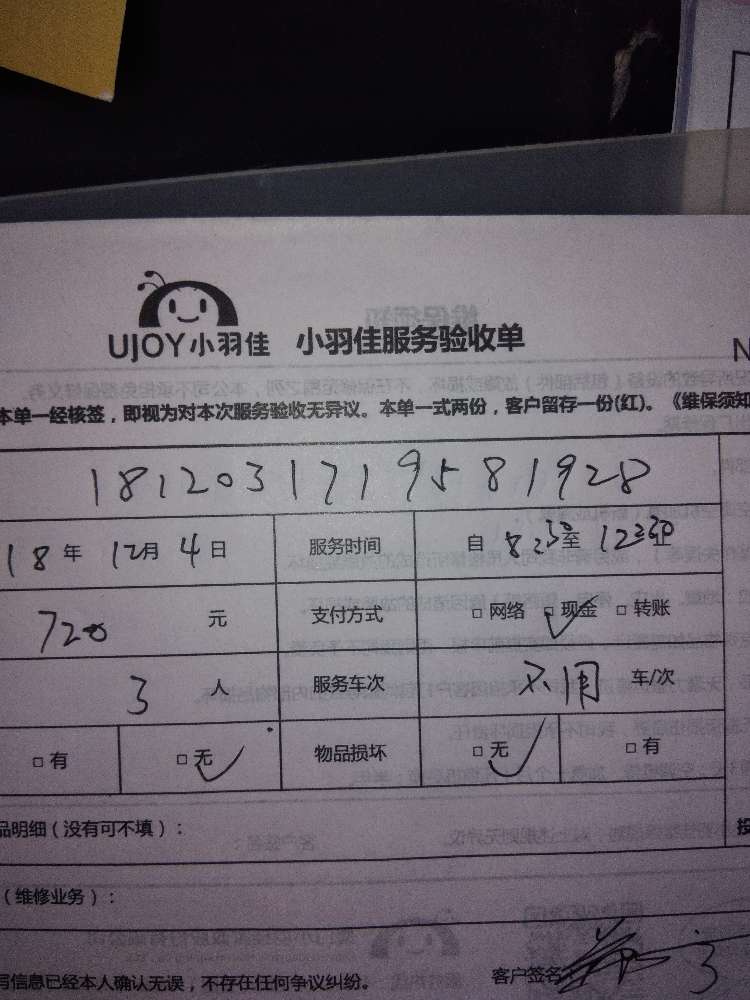 UJOY小羽佳 小羽佳服务验收单
N
本单一经核签，即视为对本次服务验收无异议。本单一式两份，客户留存一份(红)。《维保须知
1812031719581928
18年 12月 4日 服务时间 自 8:30至 12:30
720 元 支付方式 □网络 □现金 □转账
3 人 服务车次 不用 车/次
□有 □无 物品损坏 □无 □有
品明细（没有可不填）：
（维修业务）：
写信息已经本人确认无误，不存在任何争议纠纷。 客户签名：